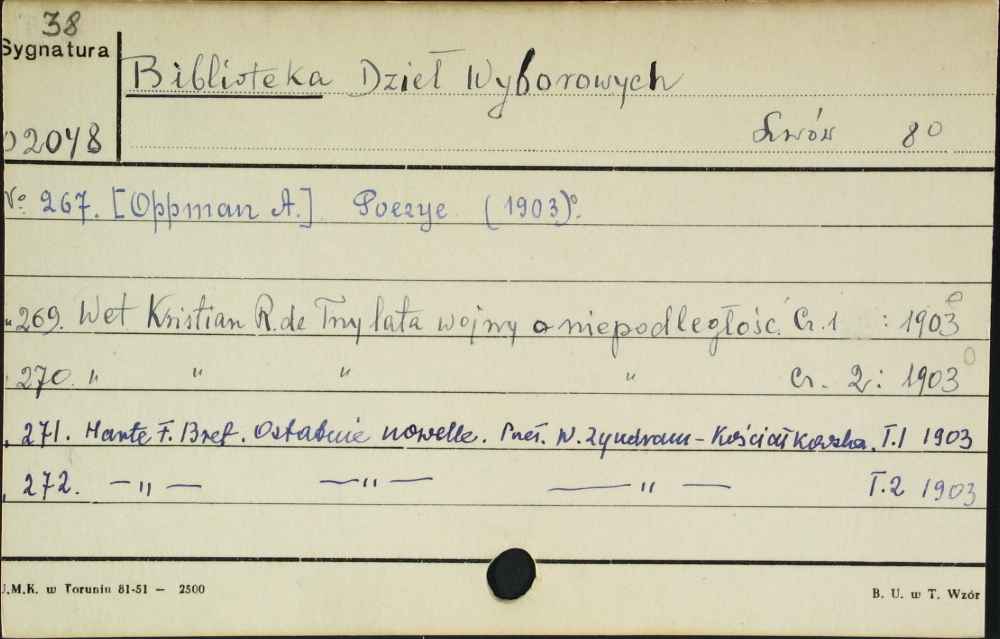 38
Sygnatura
Biblioteka Dzieł Wyborowych
02048
Lwów 80
No 267. [Oppman A.] Poezye (1903)
„ 269. Wet Kristian R. de Trzy lata wojny o niepodległość. Cz. 1 : 1903
270. „ „ „ „ Cz. 2: 1903
271. Harte F. Bret. Ostatnie nowelle. Przeł. W. Zyndram-Kościałkowska. T.1 1903
272. — „ — — „ — — „ — T.2 1903
U.M.K. w Toruniu 81-51 — 2500
B. U. w T. Wzór